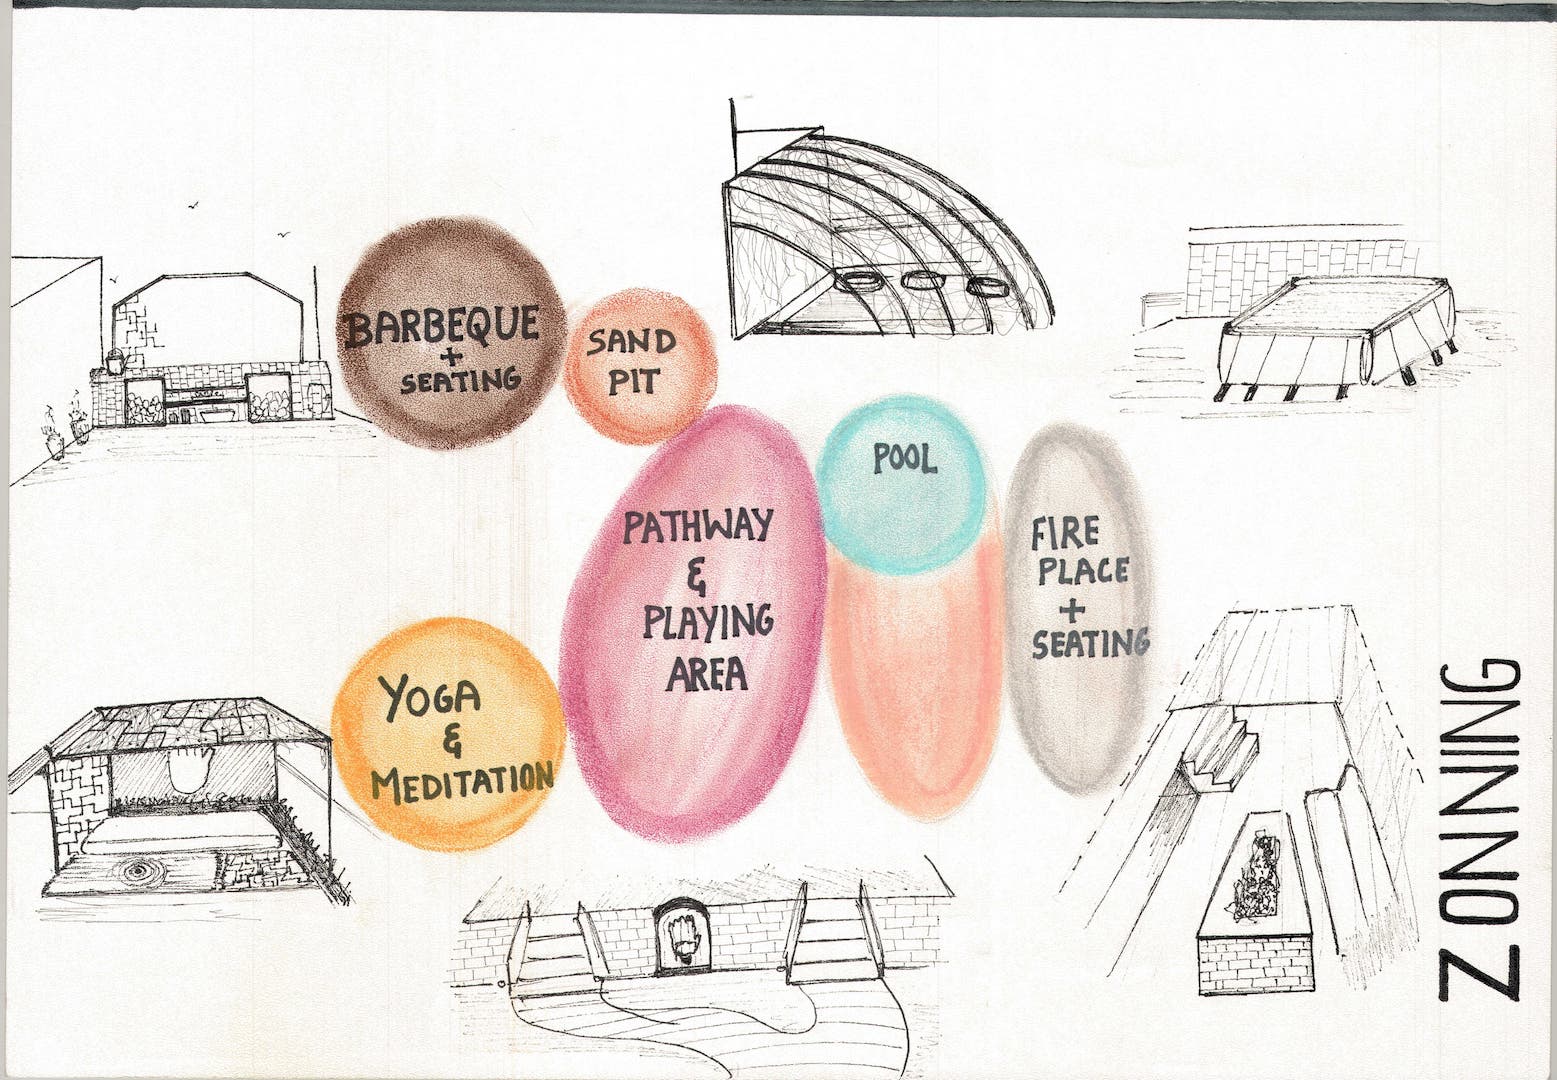 BARBEQUE
+
SEATING
SAND
PIT
PATHWAY
&
PLAYING
AREA
POOL
FIRE
PLACE
+
SEATING
YOGA
&
MEDITATION
ZONNING